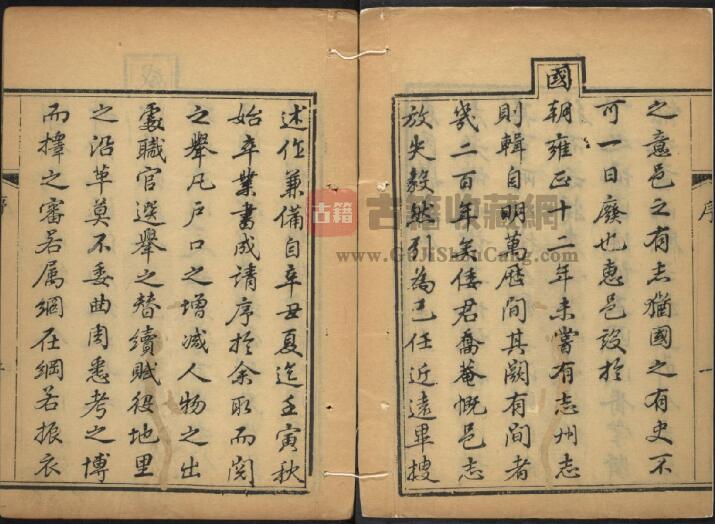 之意邑之有志猶國之有史不
可一日廢也惠邑設於
國朝雍正十二年未嘗有志州志
則輯自明萬曆間其闕有間者
幾二百年矣倭君喬菴慨邑志
放失毅然引為己任近遠畢搜
述作兼備自辛丑夏迄壬寅秋
始卒業書成請序於余取而閱
之舉凡戶口之增減人物之出
處職官選舉之替續賦役地里
之沿革莫不委曲周悉考之博
而擇之審若屬網在綱若振衣
序
一
古籍
古籍收藏網
www.GuJiShuCang.com